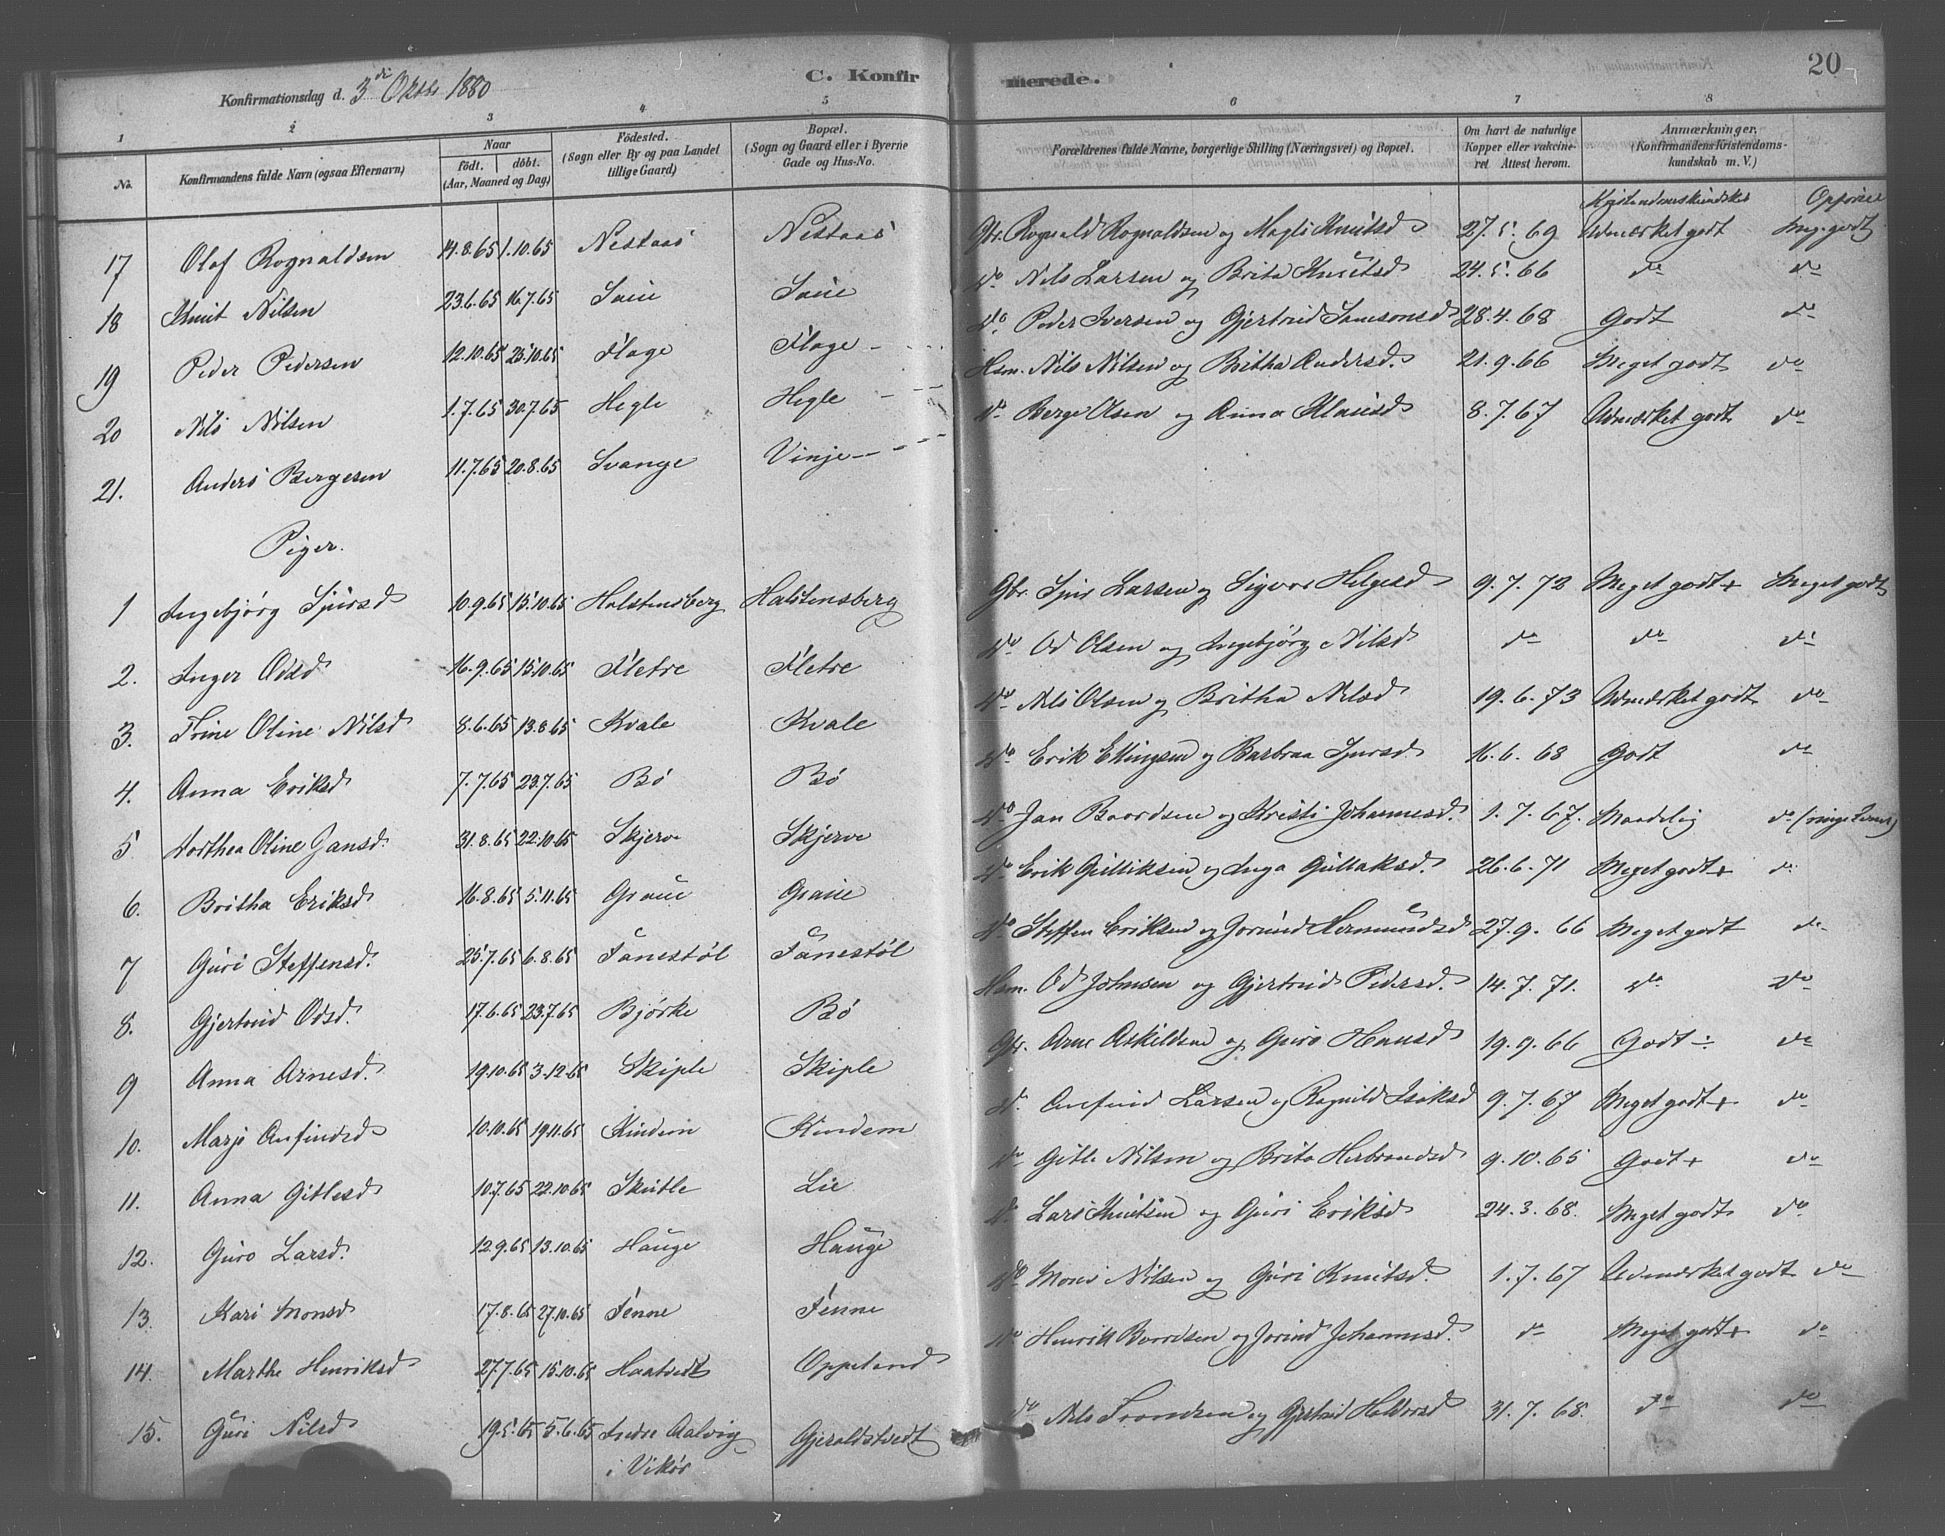 Konfirmationsdag d. 3di Oktbr 1880
C. Konfirmerede.
20
1 2 3 4 5 6 7 8
No.
Konfirmandens fulde Navn (ogsaa Efternavn)
Naar født. døbt. (Aar, Maaned og Dag)
Fødested. (Sogn eller By og paa Landet tillige Gaard)
Bopæl. (Sogn og Gaard eller i Byerne Gade og Hus-No.
Forældrenes fulde Navne, borgerlige Stilling (Næringsvei) og Bopæl.
Om havt de naturlige Kopper eller vaccineret Attest herom.
Anmærkninger. (Konfirmandens Kristendomskundskab m. V.)
Kristendomskundskab Opførsel
17 Olaf Rognaldsen 14.8.65 1.10.65 Nestaas Nestaas Gbr. Rognald Rognaldsen og Magli Knutsd 27.5.69 Udmærket godt Meg. godt
18 Knut Nilsen 23.6.65 16.7.65 Saue Saue do Nils Larsen og Brita Knutsd 24.5.66 do do
19 Peder Pedersen 12.10.65 25.10.65 Flage Flage do Peder Iversen og Gjertrud Samsonsd 28.4.68 Godt do
20 Nils Nilsen 1.7.65 30.7.65 Hegle Hegle Hsm. Nils Nilsen og Britha Andersd. 21.9.66 Meget godt do
21. Anders Bergesen 11.7.65 20.8.65 Svange Vinje do Berge Olsen og Anna Klausd 8.7.67 Udmærket godt do
Piger.
1 Ingebjørg Sjursd 10.9.65 15.10.65 Halstensberg Halstensberg Gbr. Sjur Larsen og Sigvor Helgesd 9.7.72 Meget godt + Meget godt
2. Inger Odsd 16.9.65 15.10.65 Fletre Fletre do Od Olsen og Ingebjørg Nilsd do do do
3. Trine Oline Nilsd 8.6.65 13.8.65 Kvale Kvale do Nils Olsen og Britha Nilsd 19.6.73 Udmærket godt do
4. Anna Eriksd 7.7.65 23.7.65 Bø Bø do Erik Ellingsen og Barbraa Sjursd 16.6.68 Godt do
5 Dorthea Oline Jansd. 31.8.65 22.10.65 Skjerve Skjerve do Jan Baardsen og Kristi Johannesd. 1.7.67. Maadelig do
6. Britha Eriksd 16.8.65 5.11.65 Graue Graue do Erik Gulliksen og Inga Gullaksd. 26.6.71 Meget godt + do
7 Guri Steffensd. 25.7.65 6.8.65 Fanestøl Fanestøl do Steffen Eriksen og Jorund Hermundsd 27.9.66 Meget godt do
8. Gjertrud Odsd. 17.6.65 23.7.65 Bjørke Bø Hsm. Od Johnsen og Gjertrud Pedersd. 14.7.71. do do
9 Anna Arnesd. 19.10.65 3.12.65 Skiple Skiple Gbr. Arne Askildsen og Guro Hansd 19.9.66 Godt ÷ do
10. Marjo Anfindsd 10.10.65 19.11.65 Kindem Kindem do Anfind Larsen og Ragnild Isaksd 9.7.67 Meget godt + do
11. Anna Gitlesd 10.7.65 22.10.65 Skutle Lie do Gitle Nilsen og Brita Herbrandsd 9.10.65 Godt + do
12. Guro Larsd. 12.9.65 13.10.65 Hauge Hauge do Lars Knutsen og Guri Eriksd 24.3.68. Meget godt do
13. Kari Monsd 17.8.65 27.10.65 Fenne Fenne do Mons Nilsen og Guri Knutsd. 1.7.67 Udmærket godt do
14. Marthe Henriksd 27.7.65 15.10.65 Haatvedt Oppeland do Henrik Baardsen og Jorind Johannesd. do Meget godt + do
15. Guri Nilsd 19.5.65 5.6.65 Indre Aalvig i Vikør Gjeraldstvedt do Nils Trondsen og Gjertrud Haldorsd 31.7.68. do do